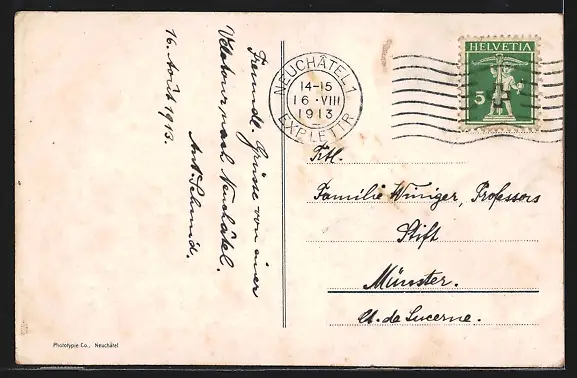 Freundl. Grüsse von einer
Velotour nach Neuchâtel.
Ant. Schmid.
16. Août 1913.
NEUCHÂTEL 1
14-15
16·VIII
1913
EXP. LETTR.
HELVETIA
5
Ttl.
Familie Winiger, Professors
Stift
Münster.
Ct. de Lucerne.
Phototypie Co., Neuchâtel